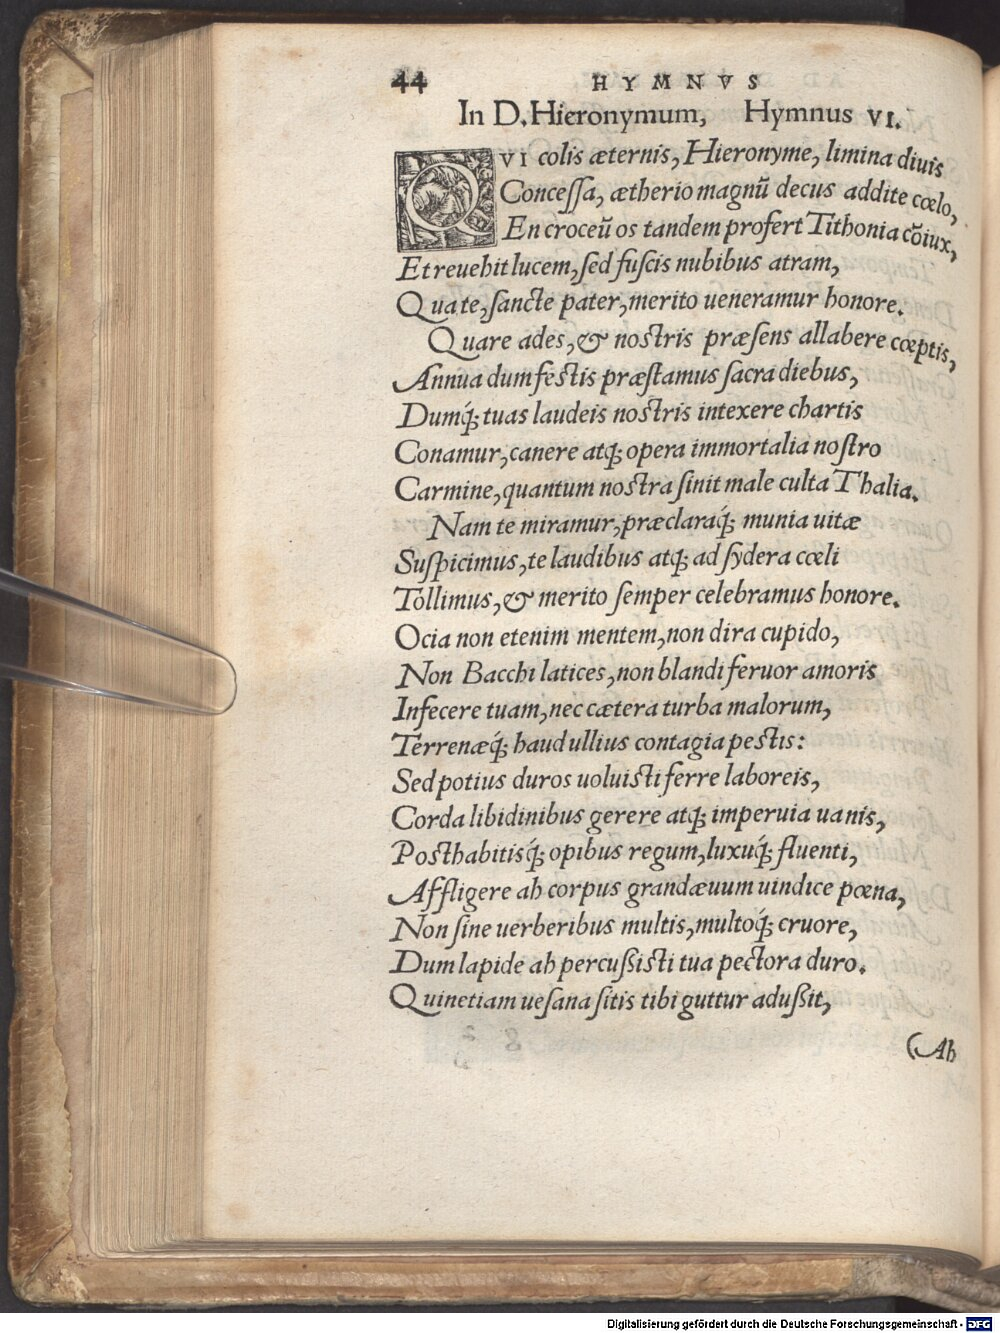 44 HYMNVS
In D. Hieronymum, Hymnus VI.
QVI colis æternis, Hieronyme, limina diuis
Concessa, ætherio magnũ decus addite cœlo,
En croceũ os tandem profert Tithonia cõiux,
Et reuehit lucem, sed fuscis nubibus atram,
Qua te, sancte pater, merito ueneramur honore.
Quare ades, & nostris præsens allabere cœptis,
Annua dum festis præstamus sacra diebus,
Dumq́; tuas laudeis nostris intexere chartis
Conamur, canere atq; opera immortalia nostro
Carmine, quantum nostra sinit male culta Thalia.
Nam te miramur, præclaraq́; munia uitæ
Suspicimus, te laudibus atq; ad sydera cœli
Tollimus, & merito semper celebramus honore.
Ocia non etenim mentem, non dira cupido,
Non Bacchi latices, non blandi feruor amoris
Infecere tuam, nec cætera turba malorum,
Terrenæq́; haud ullius contagia pestis:
Sed potius duros uoluisti ferre laboreis,
Corda libidinibus gerere atq; imperuia uanis,
Posthabitisq́; opibus regum, luxuq́; fluenti,
Affligere ah corpus grandæuum uindice pœna,
Non sine uerberibus multis, multoq́; cruore,
Dum lapide ah percußisti tua pectora duro.
Quinetiam uesana sitis tibi guttur adußit,
(Ah
Digitalisierung gefördert durch die Deutsche Forschungsgemeinschaft - DFG